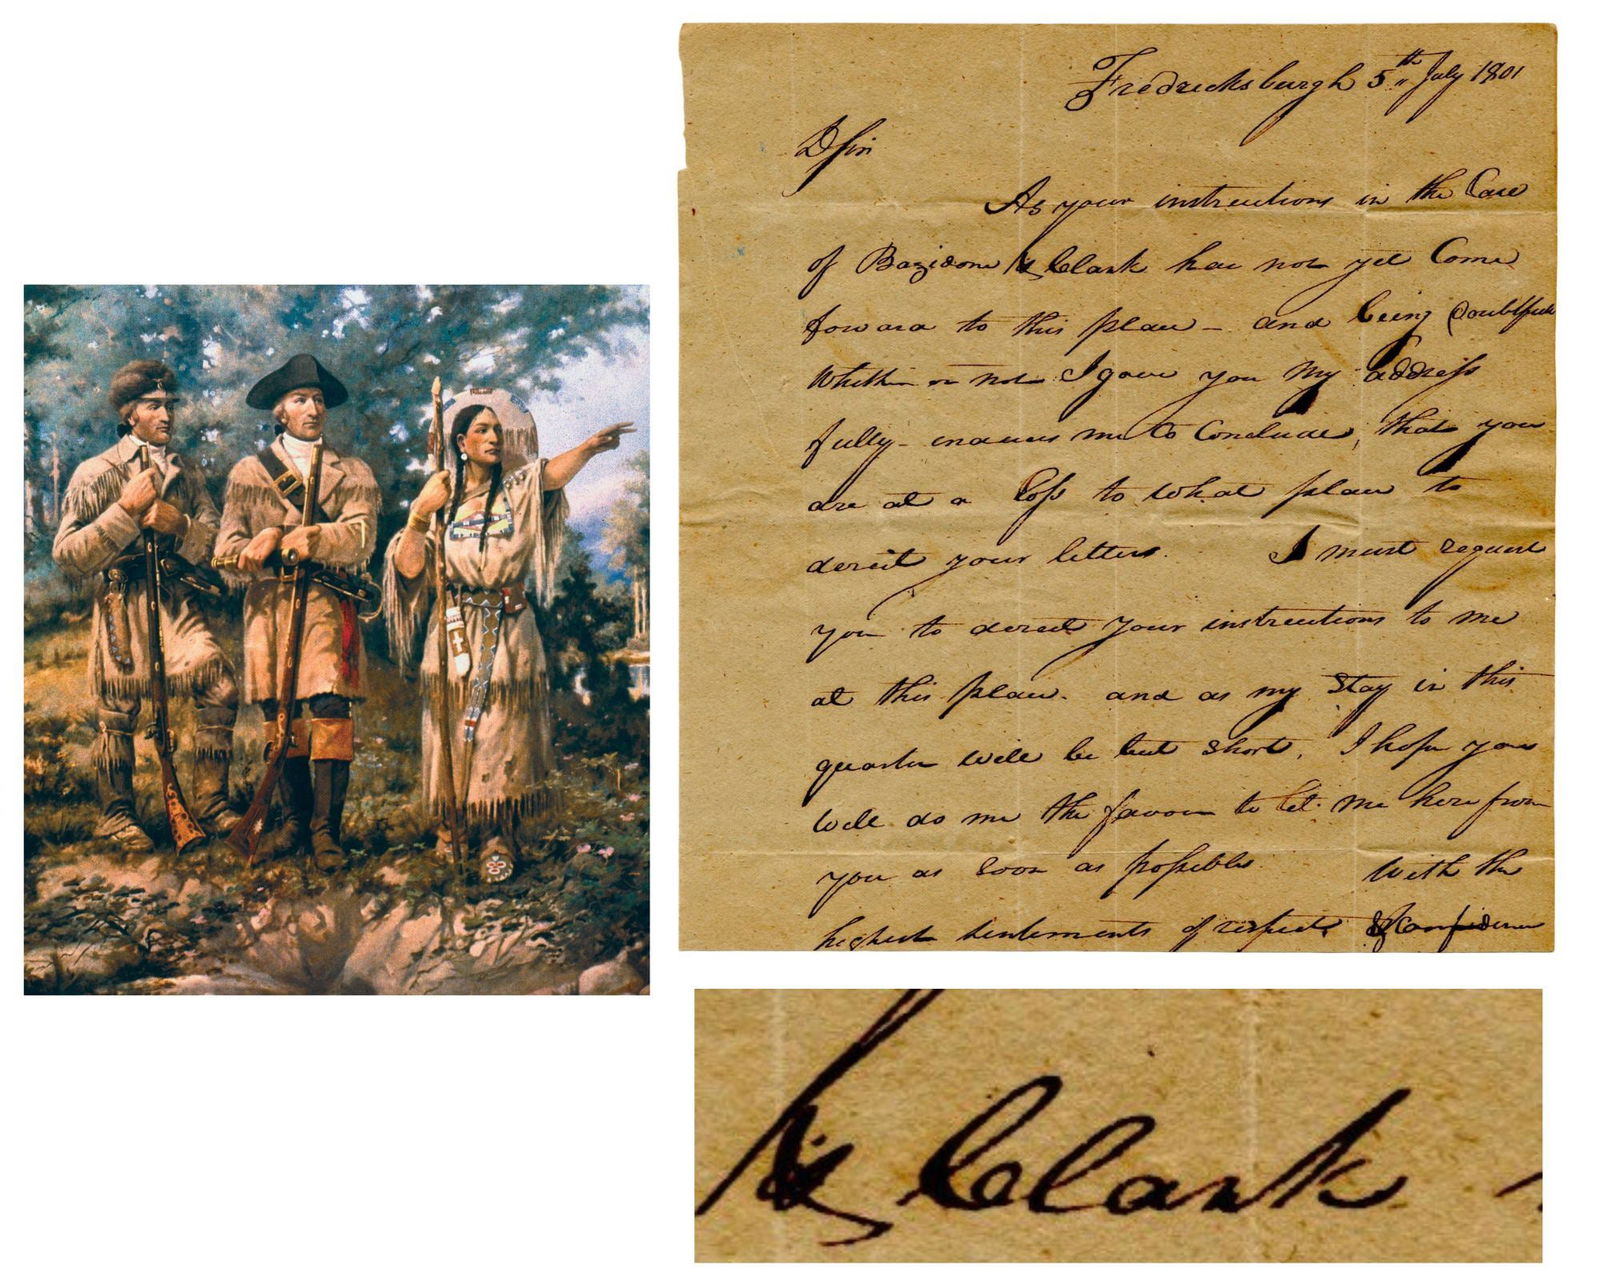 Fredricksburgh 5th July 1801
D Sir
As your instructions in the Case
of Bazidone vs Clark has not yet Come
forward to this place - and being doubtfull
Whether or not I gave you My address
fully - induces me to Conclude, that you
are at a Loss to what place to
derect your letters. I must request
you to derect your instructions to me
at this place. and as my Stay in this
quarter will be but Short, I hope you
will do me the favour to let me here from
you as Soon as possible With the
highest sentements of respect & Confidence
vs Clark